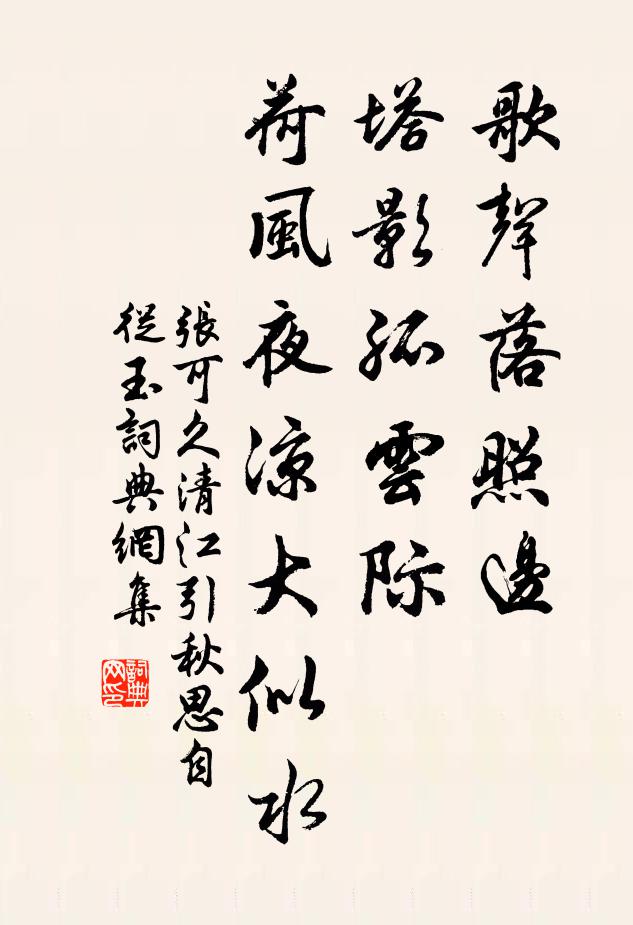 歌聲落照邊
塔影孤雲际
荷風夜涼大似水
張可久清江引秋思自
從玉詞典網集
詞典
网印